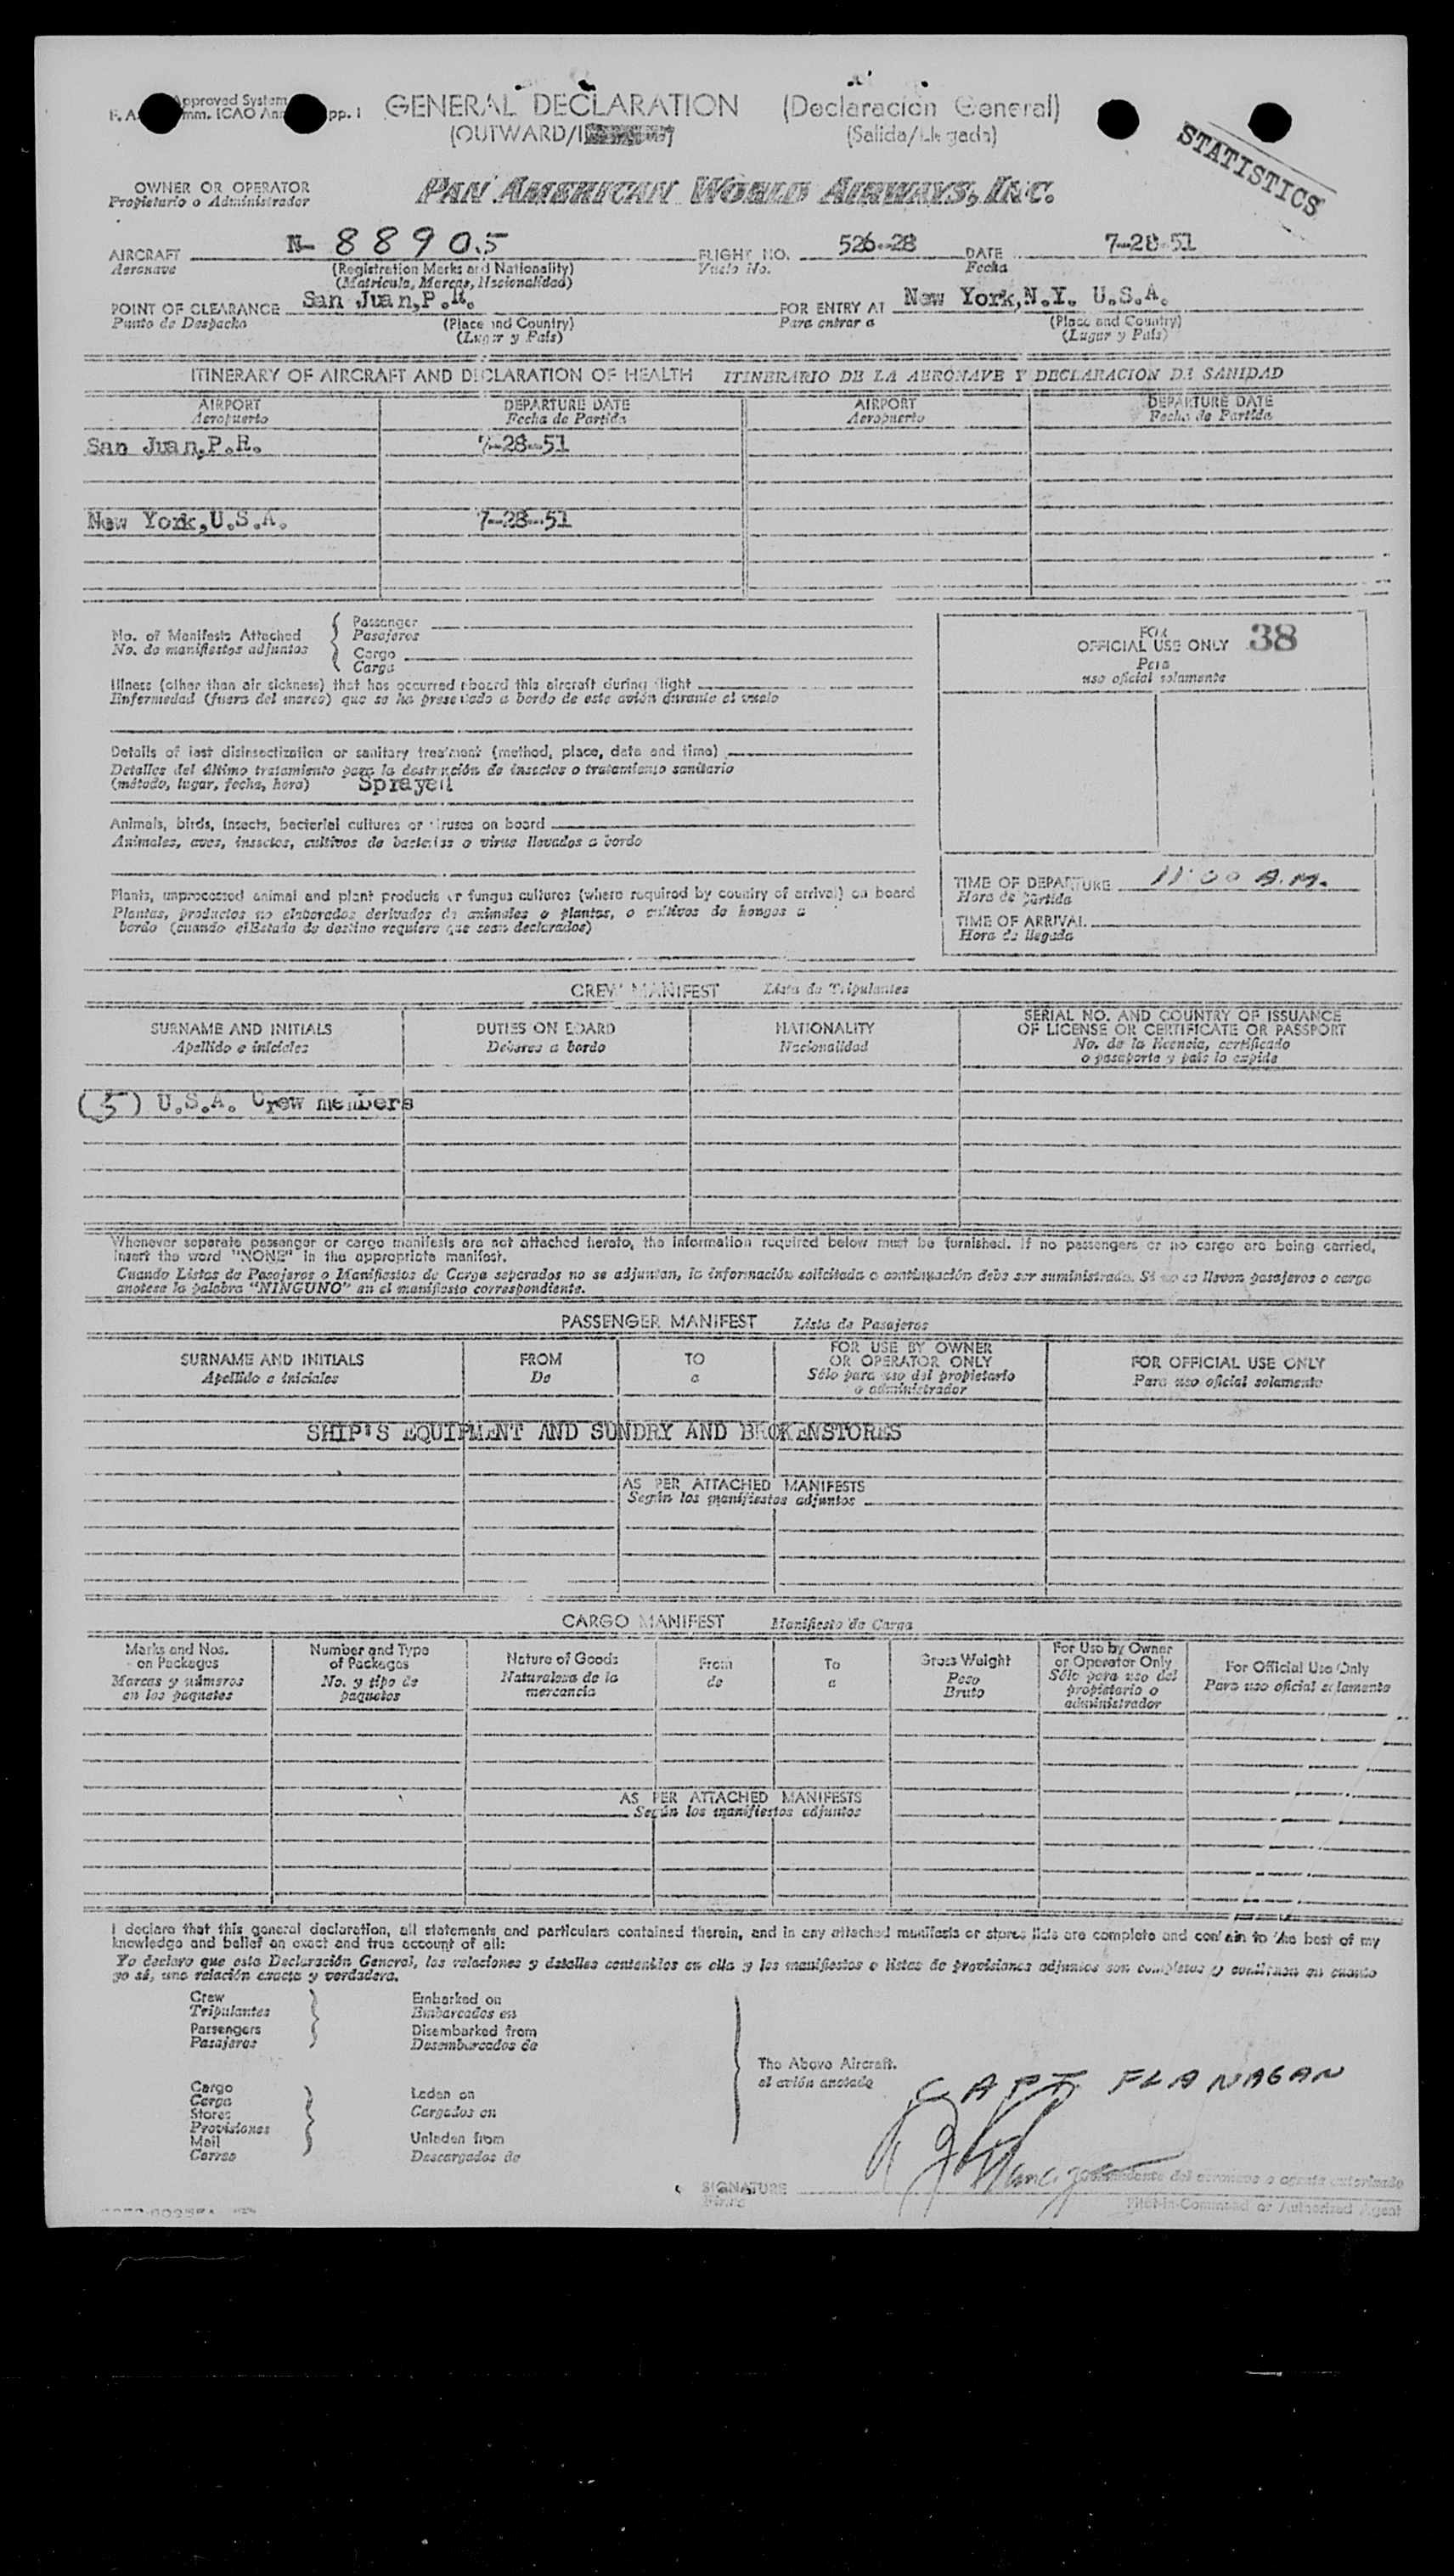 GENERAL DECLARATION (Declaracion General)
(OUTWARD/ (Salida/Llegada)
STATISTICS
OWNER OR OPERATOR
Propietario o Administrador
PAN AMERICAN WORLD AIRWAYS, INC.
AIRCRAFT N- 88905 FLIGHT NO. 526-28 DATE 7-28-51
Aeronave (Registration Marks and Nationality) Vuelo No. Fecha
(Matricula, Marcas, Nacionalidad)
POINT OF CLEARANCE San Juan,P.R. FOR ENTRY AT New York,N.Y. U.S.A.
Punto de Despacho (Place and Country) Para entrar a (Place and Country)
(Lugar y País) (Lugar y País)
ITINERARY OF AIRCRAFT AND DECLARATION OF HEALTH ITINERARIO DE LA AERONAVE Y DECLARACION DE SANIDAD
AIRPORT DEPARTURE DATE AIRPORT DEPARTURE DATE
Aeropuerto Fecha de Partida Aeropuerto Fecha de Partida
San Juan,P.R. 7-28-51
New York,U.S.A. 7-28-51
No. of Manifests Attached
No. de manifiestos adjuntos
Passenger
Pasajeros
Cargo
Carga
FOR
OFFICIAL USE ONLY 38
Para
uso oficial solamente
Illness (other than air sickness) that has occurred aboard this aircraft during flight
Enfermedad (fuera del mareo) que se ha presentado a bordo de este avión durante el vuelo
Details of last disinsectization or sanitary treatment (method, place, date and time)
Detalles del último tratamiento para la destrucción de insectos o tratamiento sanitario
(método, lugar, fecha, hora) Sprayed
Animals, birds, insects, bacterial cultures or viruses on board
Animales, aves, insectos, cultivos de bacterias o virus llevados a bordo
Plants, unprocessed animal and plant products or fungus cultures (where required by country of arrival) on board
Plantas, productos no elaborados derivados de animales o plantas, o cultivos de hongos a
bordo (cuando el Estado de destino requiere que sean declarados)
TIME OF DEPARTURE 11:00 A.M.
Hora de partida
TIME OF ARRIVAL
Hora de llegada
CREW MANIFEST Lista de Tripulantes
SURNAME AND INITIALS DUTIES ON BOARD NATIONALITY SERIAL NO. AND COUNTRY OF ISSUANCE
OF LICENSE OR CERTIFICATE OR PASSPORT
Apellido e iniciales Deberes a bordo Nacionalidad No. de la licencia, certificado
o pasaporte y país lo expide
(5) U.S.A. Crew members
Whenever separate passenger or cargo manifests are not attached hereto, the information required below must be furnished. If no passengers or no cargo are being carried,
insert the word "NONE" in the appropriate manifest.
Cuando Listas de Pasajeros o Manifiestos de Carga separados no se adjuntan, la información solicitada a continuación debe ser suministrada. Si no se llevan pasajeros o carga
anotese la palabra "NINGUNO" en el manifiesto correspondiente.
PASSENGER MANIFEST Lista de Pasajeros
SURNAME AND INITIALS FROM TO FOR USE BY OWNER
OR OPERATOR ONLY FOR OFFICIAL USE ONLY
Apellido e iniciales De a Sólo para uso del propietario
o administrador Para uso oficial solamente
SHIP'S EQUIPMENT AND SUNDRY AND BROKENSTORES
AS PER ATTACHED MANIFESTS
Según los manifiestos adjuntos
CARGO MANIFEST Manifiesto de Carga
Marks and Nos.
on Packages
Marcas y números
en los paquetes
Number and Type
of Packages
No. y tipo de
paquetes
Nature of Goods
Naturaleza de la
mercancia
From
de
To
a
Gross Weight
Peso
Bruto
For Use by Owner
or Operator Only
Sólo para uso del
propietario o
administrador
For Official Use Only
Para uso oficial solamente
AS PER ATTACHED MANIFESTS
Según los manifiestos adjuntos
I declare that this general declaration, all statements and particulars contained therein, and in any attached manifests or stores lists are complete and contain to the best of my
knowledge and belief an exact and true account of all:
Yo declaro que esta Declaración General, las relaciones y detalles contenidos en ella y los manifiestos o listas de provisiones adjuntos son completos y contienen en cuanto
yo sé, una relación exacta y verdadera.
Crew
Tripulantes
Passengers
Pasajeros
Embarked on
Embarcados en
Disembarked from
Desembarcados de
Cargo
Carga
Stores
Provisiones
Mail
Correo
Laden on
Cargados en
Unladen from
Descargados de
The Above Aircraft.
el avión anotado
CAPT FLANAGAN
SIGNATURE
Firma
Comandante del aeronave o agente autorizado
Pilot-in-Command or Authorized Agent